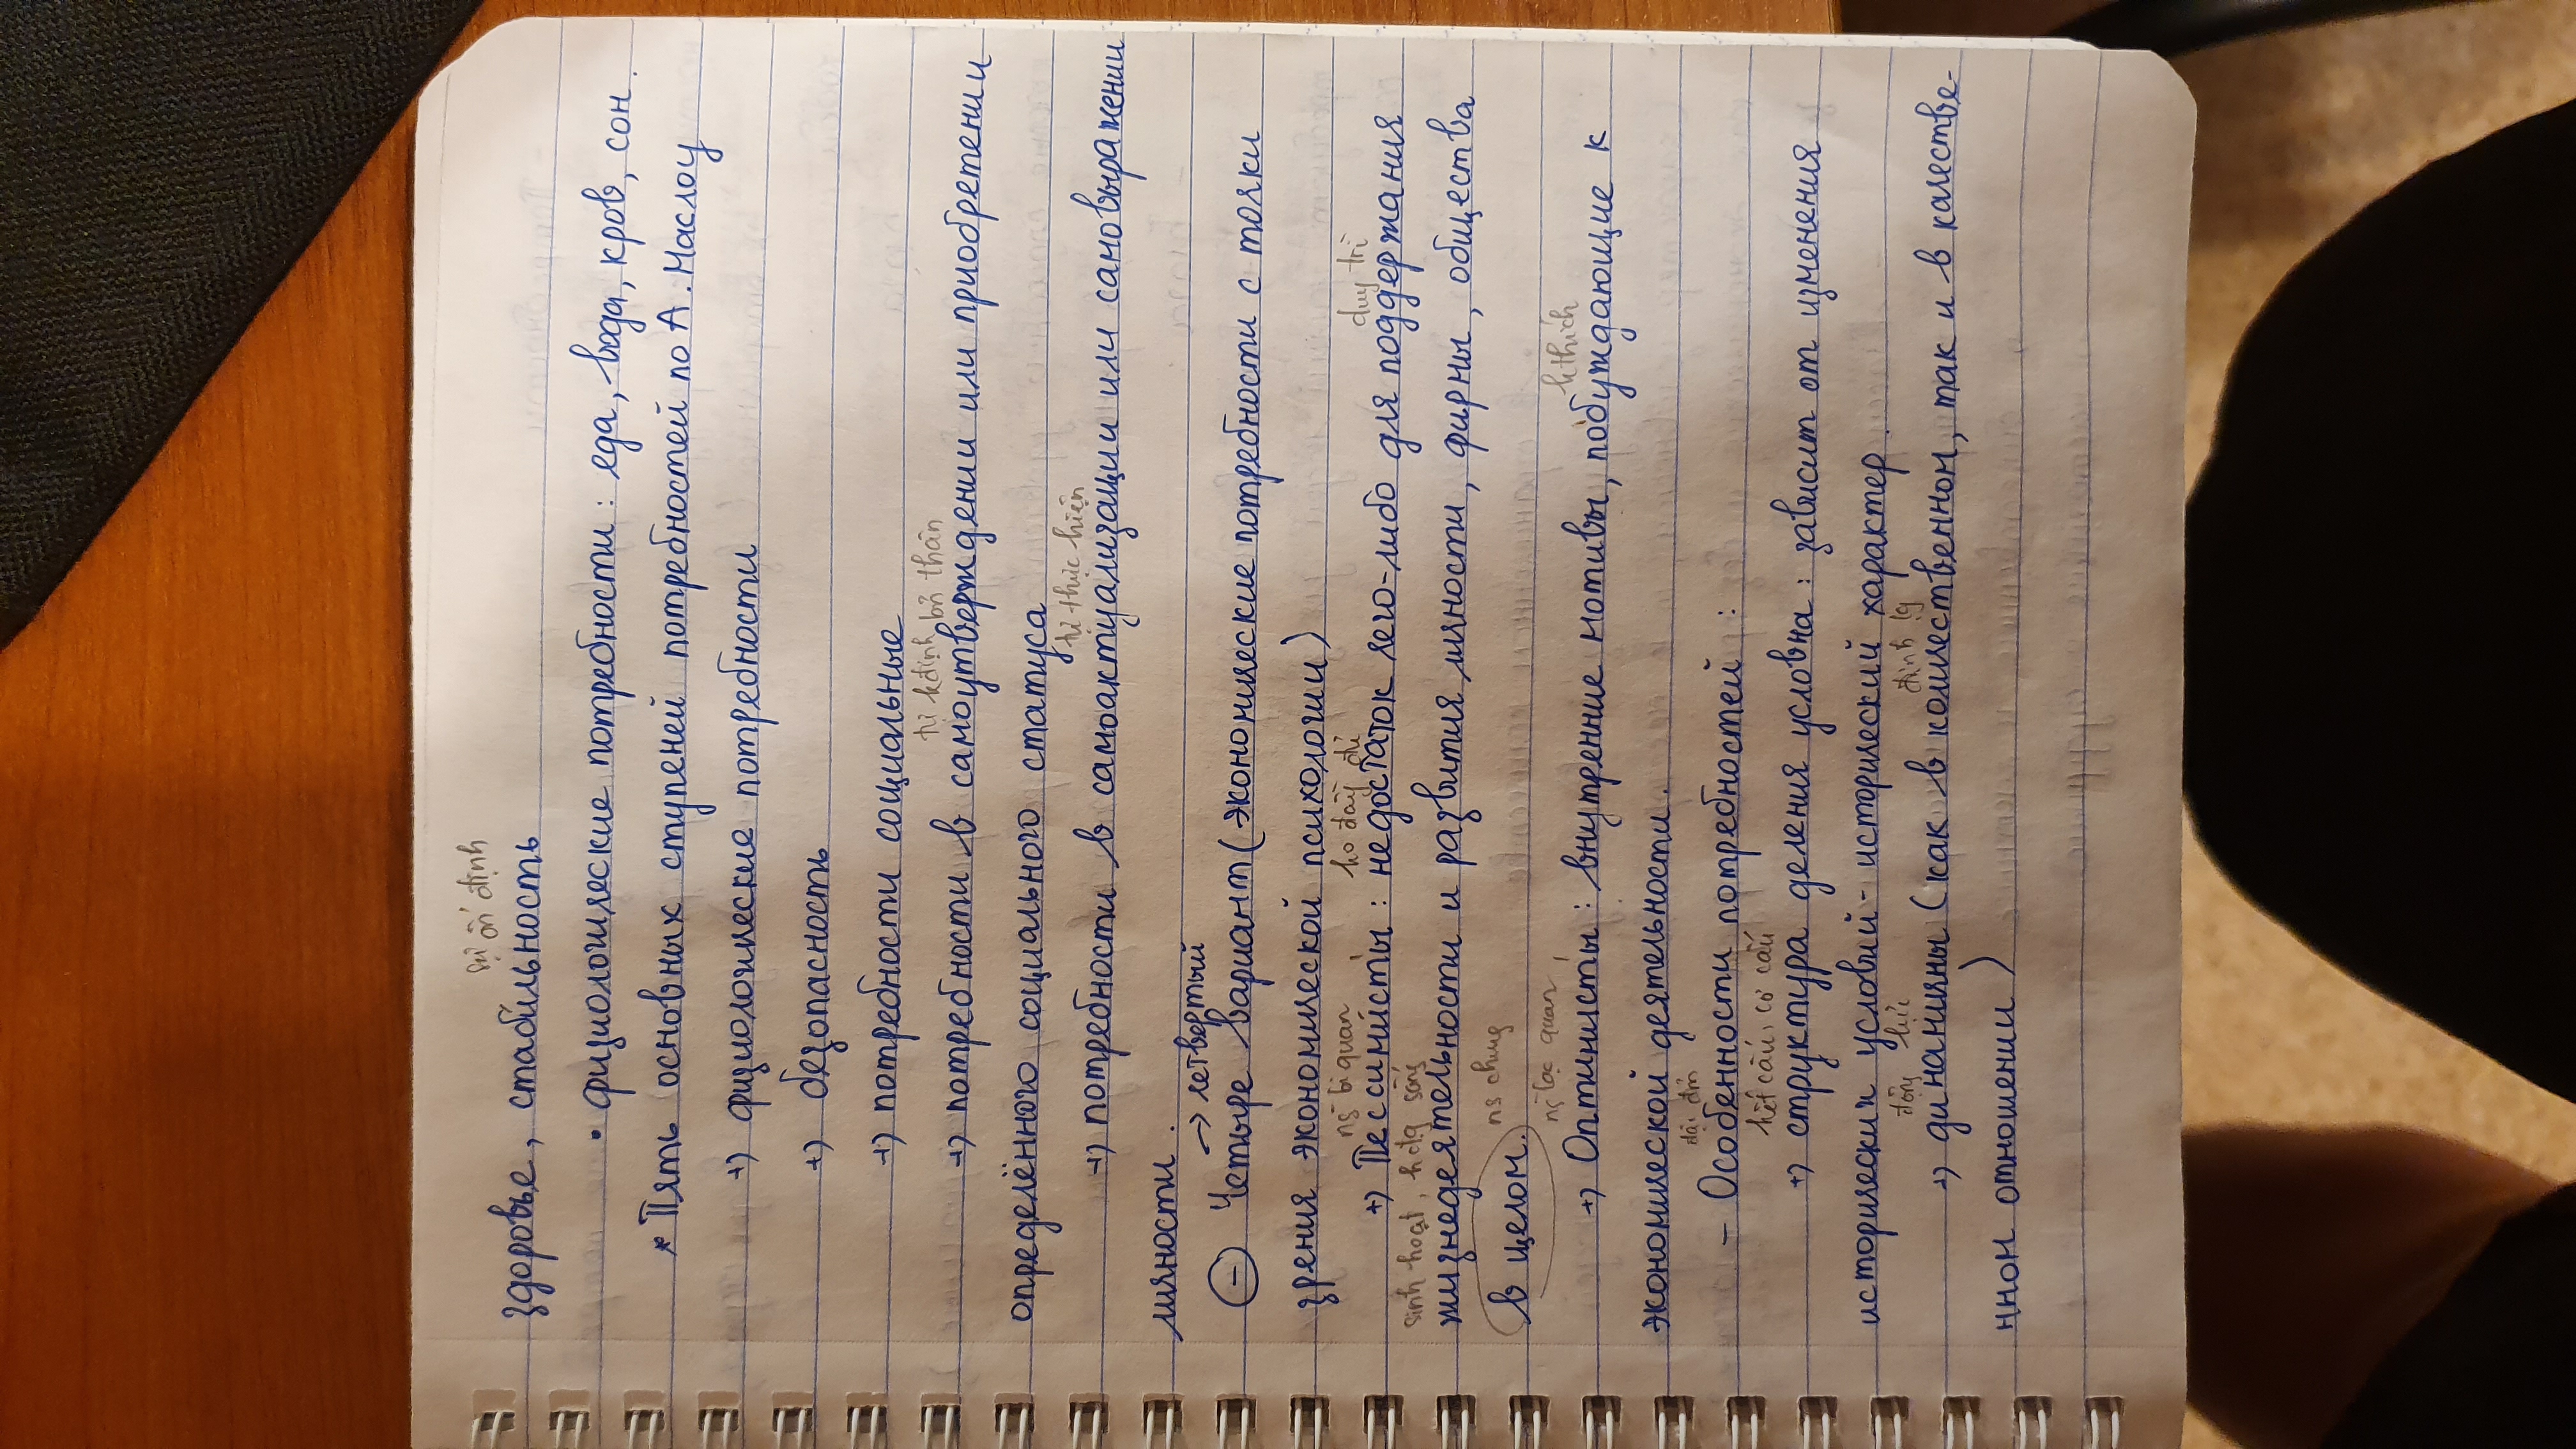 sự ổn định
здоровье, стабильность
• физиологические потребности: еда, вода, кров, сон.
* Пять основных ступеней потребностей по А. Маслоу
+) физиологические потребности
+) безопасность
+) потребности социальные
tự kđịnh bn thân
+) потребности в самоутверждении или приобретении
определённого социального статуса
tự thực hiện
+) потребности в самоактуализации или самовыражении
личности.
→ четвертый
- Четыре вариант (экономические потребности с точки
зрения экономической психологии)
ng bi quan ko đầy đủ duy trì
+) Пессимисты: недостаток чего-либо для поддержания
sinh hoạt, hđg sống
жизнедеятельности и развития личности, фирмы, общества
ns chung
в целом.
ng lạc quan k thích
+) Оптимисты: внутренние мотивы, побуждающие к
экономической деятельности.
đặc đm
- Особенности потребностей:
kết cấu, cơ cấu
+) структура деления условна: зависит от изменения
исторических условий - исторический характер.
động lực định lg
+) динамизм (как в количественном, так и в качестве-
нном отношении)